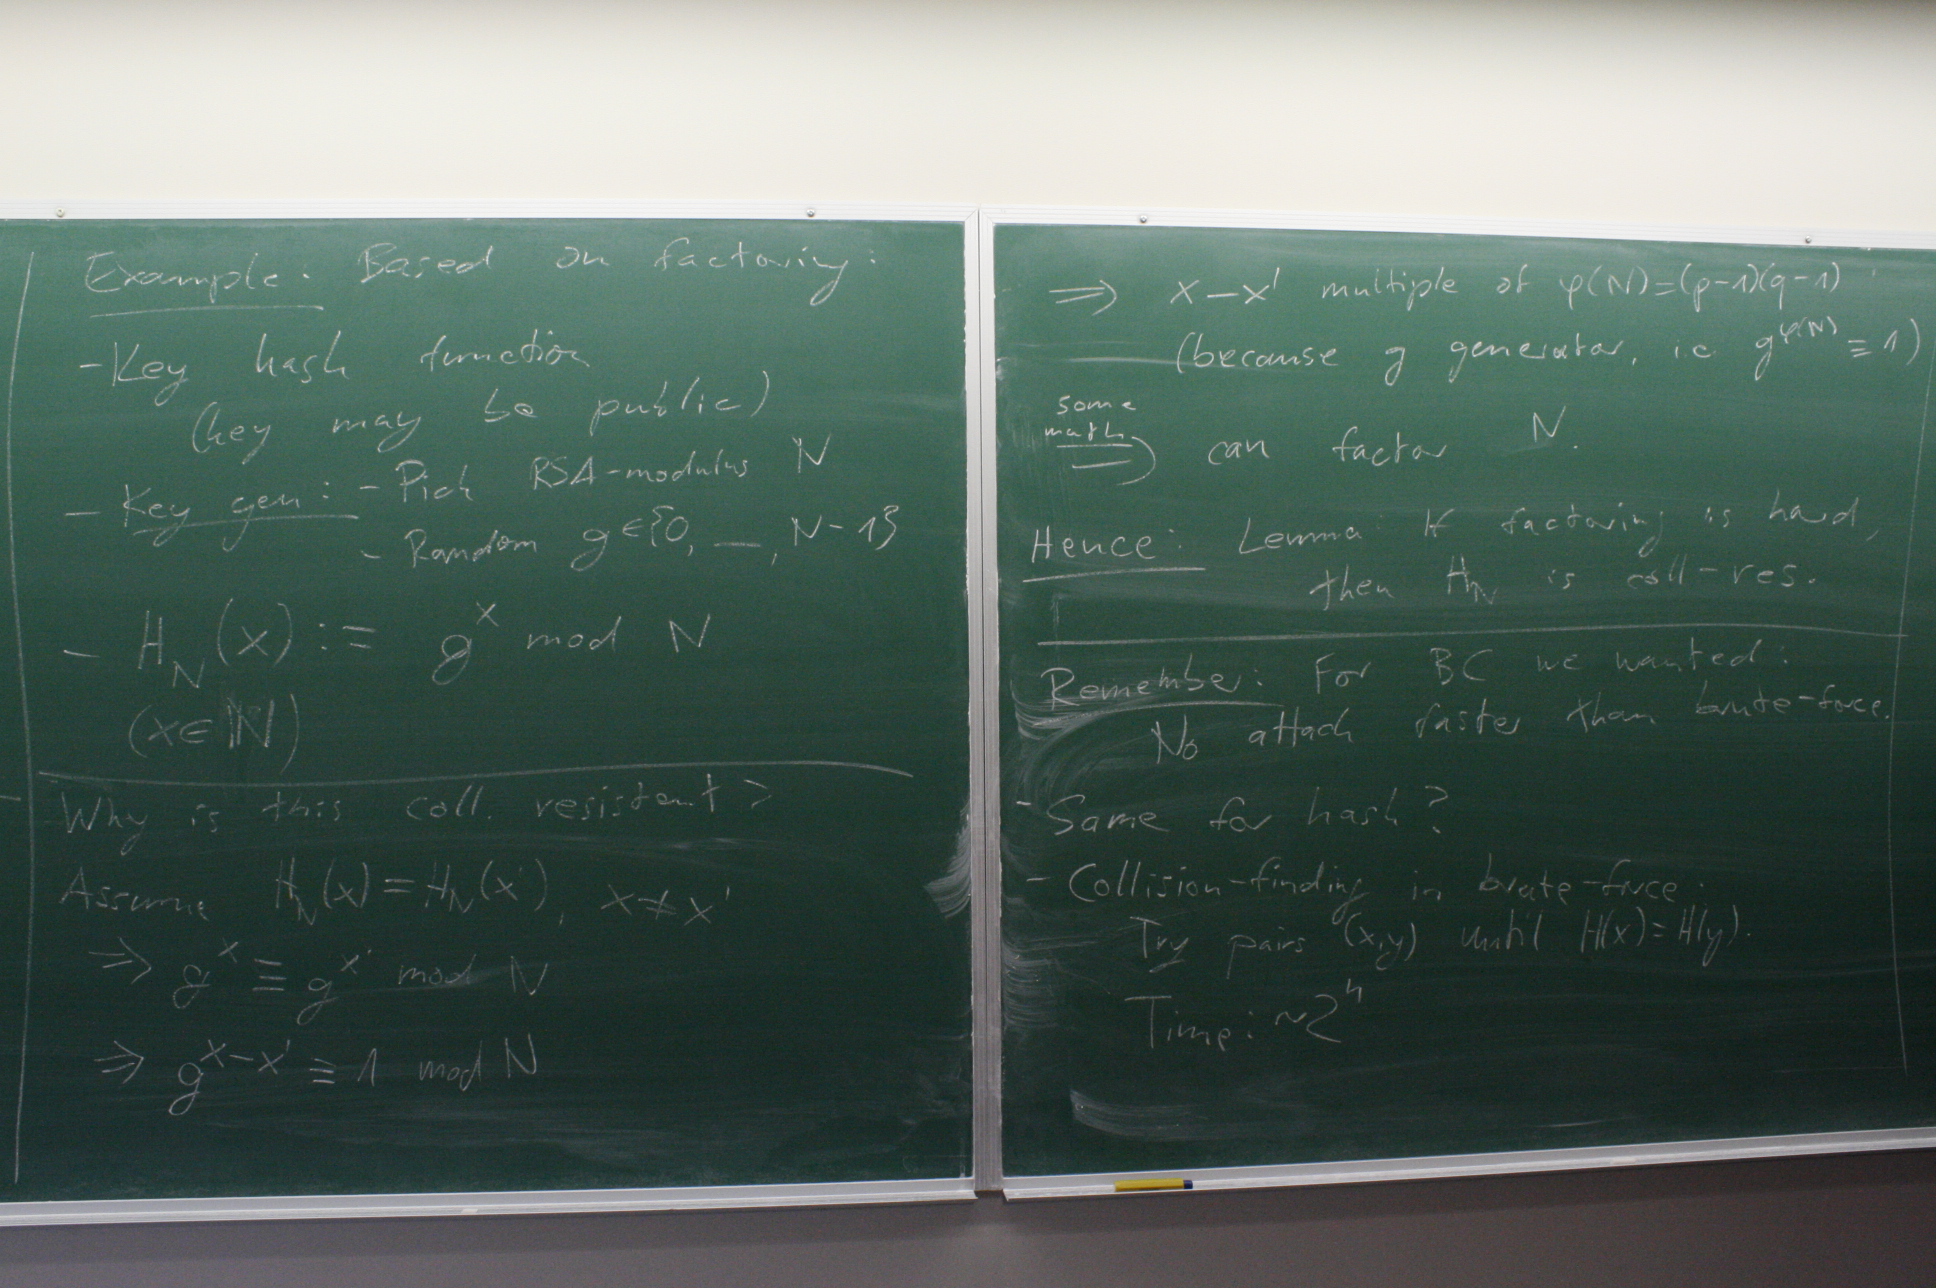 Example: Based on factoring:
- Key hash function
(key may be public)
- Key gen: - Pick RSA-modulus N
- Random g∈{0, —, N-1}
- H_N(x) := g^x mod N
(x∈ℕ)
Why is this coll. resistent?
Assume H_N(x) = H_N(x'), x≠x'
⇒ g^x ≡ g^x' mod N
⇒ g^x-x' ≡ 1 mod N
⇒ x-x' multiple of φ(N)=(p-1)(q-1)
(because g generator, i.e. g^φ(N) ≡ 1)
some
math
⇒ can factor N.
Hence: Lemma: If factoring is hard,
then H_N is coll-res.
Remember: For BC we wanted:
No attack faster than brute-force.
- Same for hash?
- Collision-finding in brute-force:
Try pairs (x,y) until H(x)=H(y).
Time: ~2^n